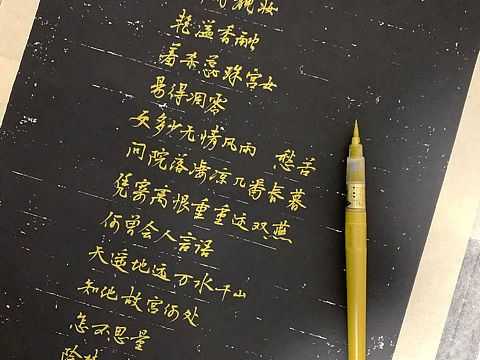 靓妆
艳溢香融
羞杀蕊珠宫女
易得凋零
更多少无情风雨 愁苦
问院落凄凉几番春暮
凭寄离恨重重这双燕
何曾会人言语
天遥地远万水千山
知他故宫何处
怎不思量
除梦